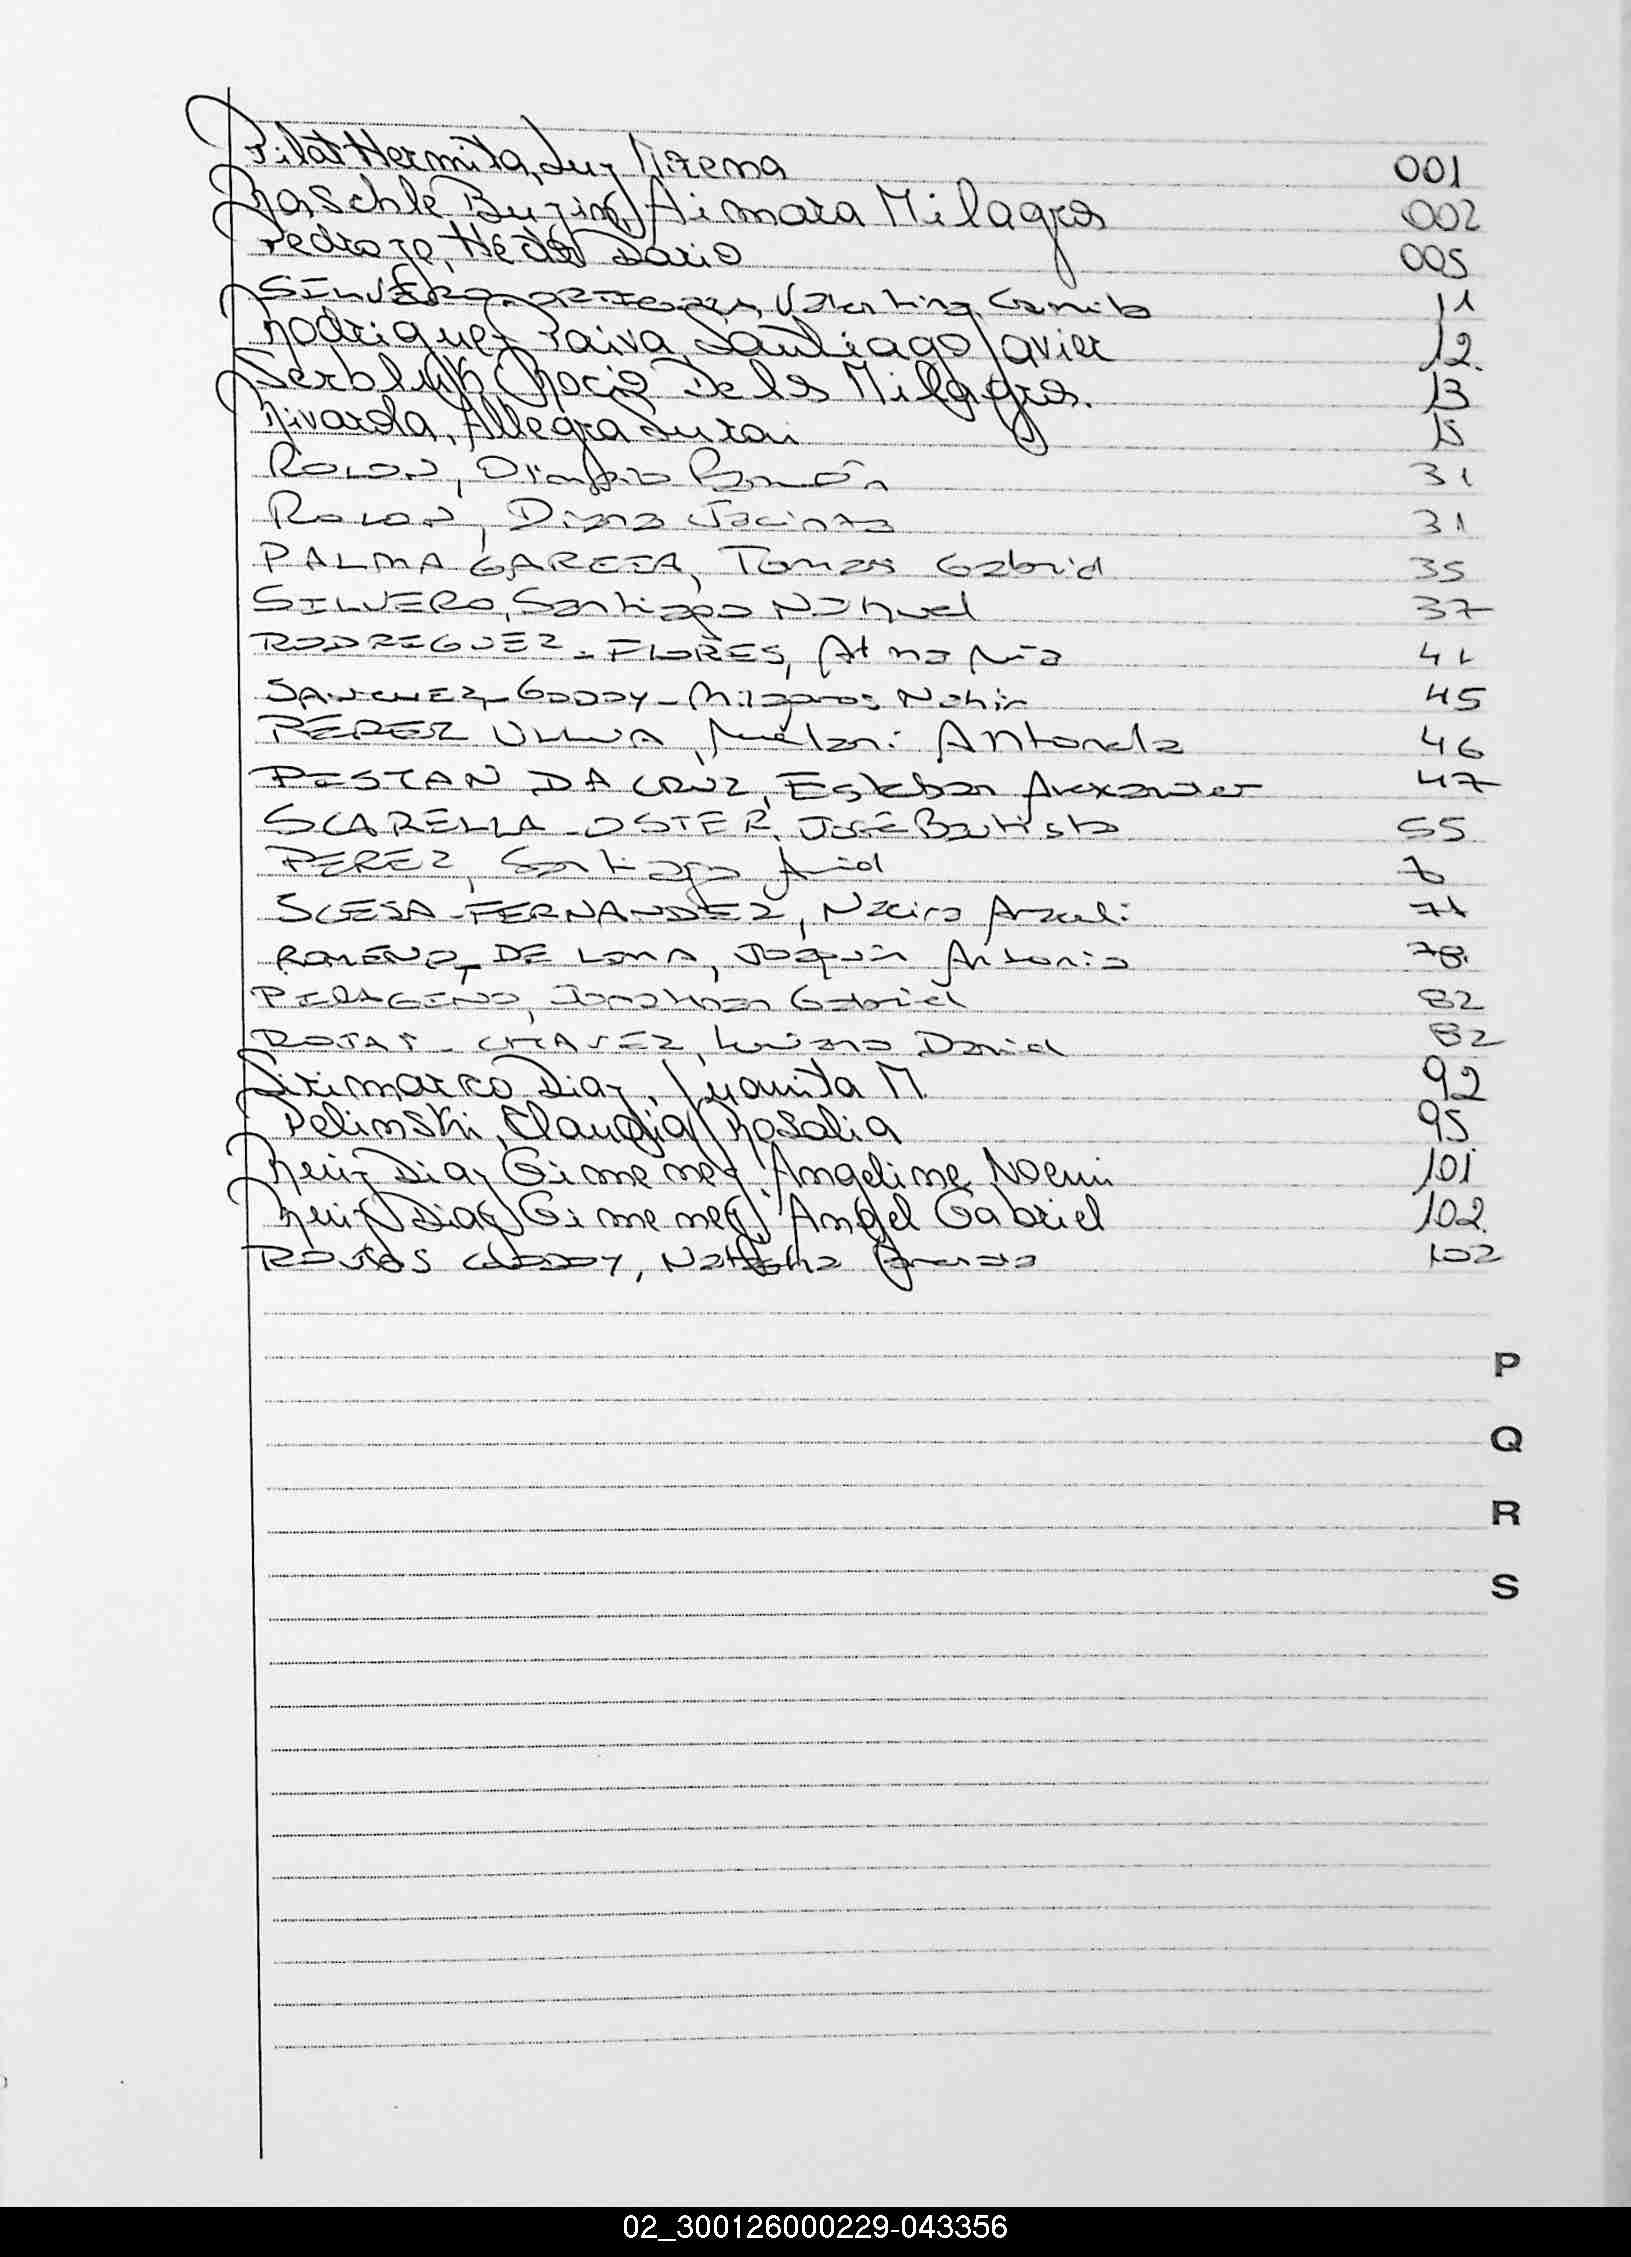 Pilat Hermita, Luz Mirena 001
Raschle Buzing, Aimara Milagros 002
Pedrozo, Héctor Dario 005
SILVERO, Valentina Camila 11
Rodriguez Paiva, Santiago Javier 12
Rocio De Los Milagros. 13
Rivarola, Allegra 15
ROLON, Ramón 31
ROLON, Diana Jacinta 31
PALMA GARCIA, Tomas Gabriel 35
SILVERO, Santiago Nahuel 37
RODRIGUEZ - FLORES, Alma Mia 41
SANCHEZ - GODOY - Milagros Nahir 45
PEREZ ULLUA, Melani Antonela 46
PESTAN DA CRUZ, Esteban Alexander 47
SCARELLA - OSTER, José Bautista 55
PEREZ, Santiago 70
SCESA - FERNANDEZ, Araceli 71
ROMERO, DE LIMA, Joaquin Antonio 78
PIRAGINO, Jonathan Gabriel 82
ROJAS - CHAVEZ, Luciano David 82
Sirimarco Diaz, Juanita M. 92
Pelinski, Claudia Rosalia 95
Ruiz Diaz Gimenez, Angeline Noemi 101
Ruiz Diaz Gimenez, Angel Gabriel 102
GODOY, 102
P
Q
R
S
02_300126000229-043356